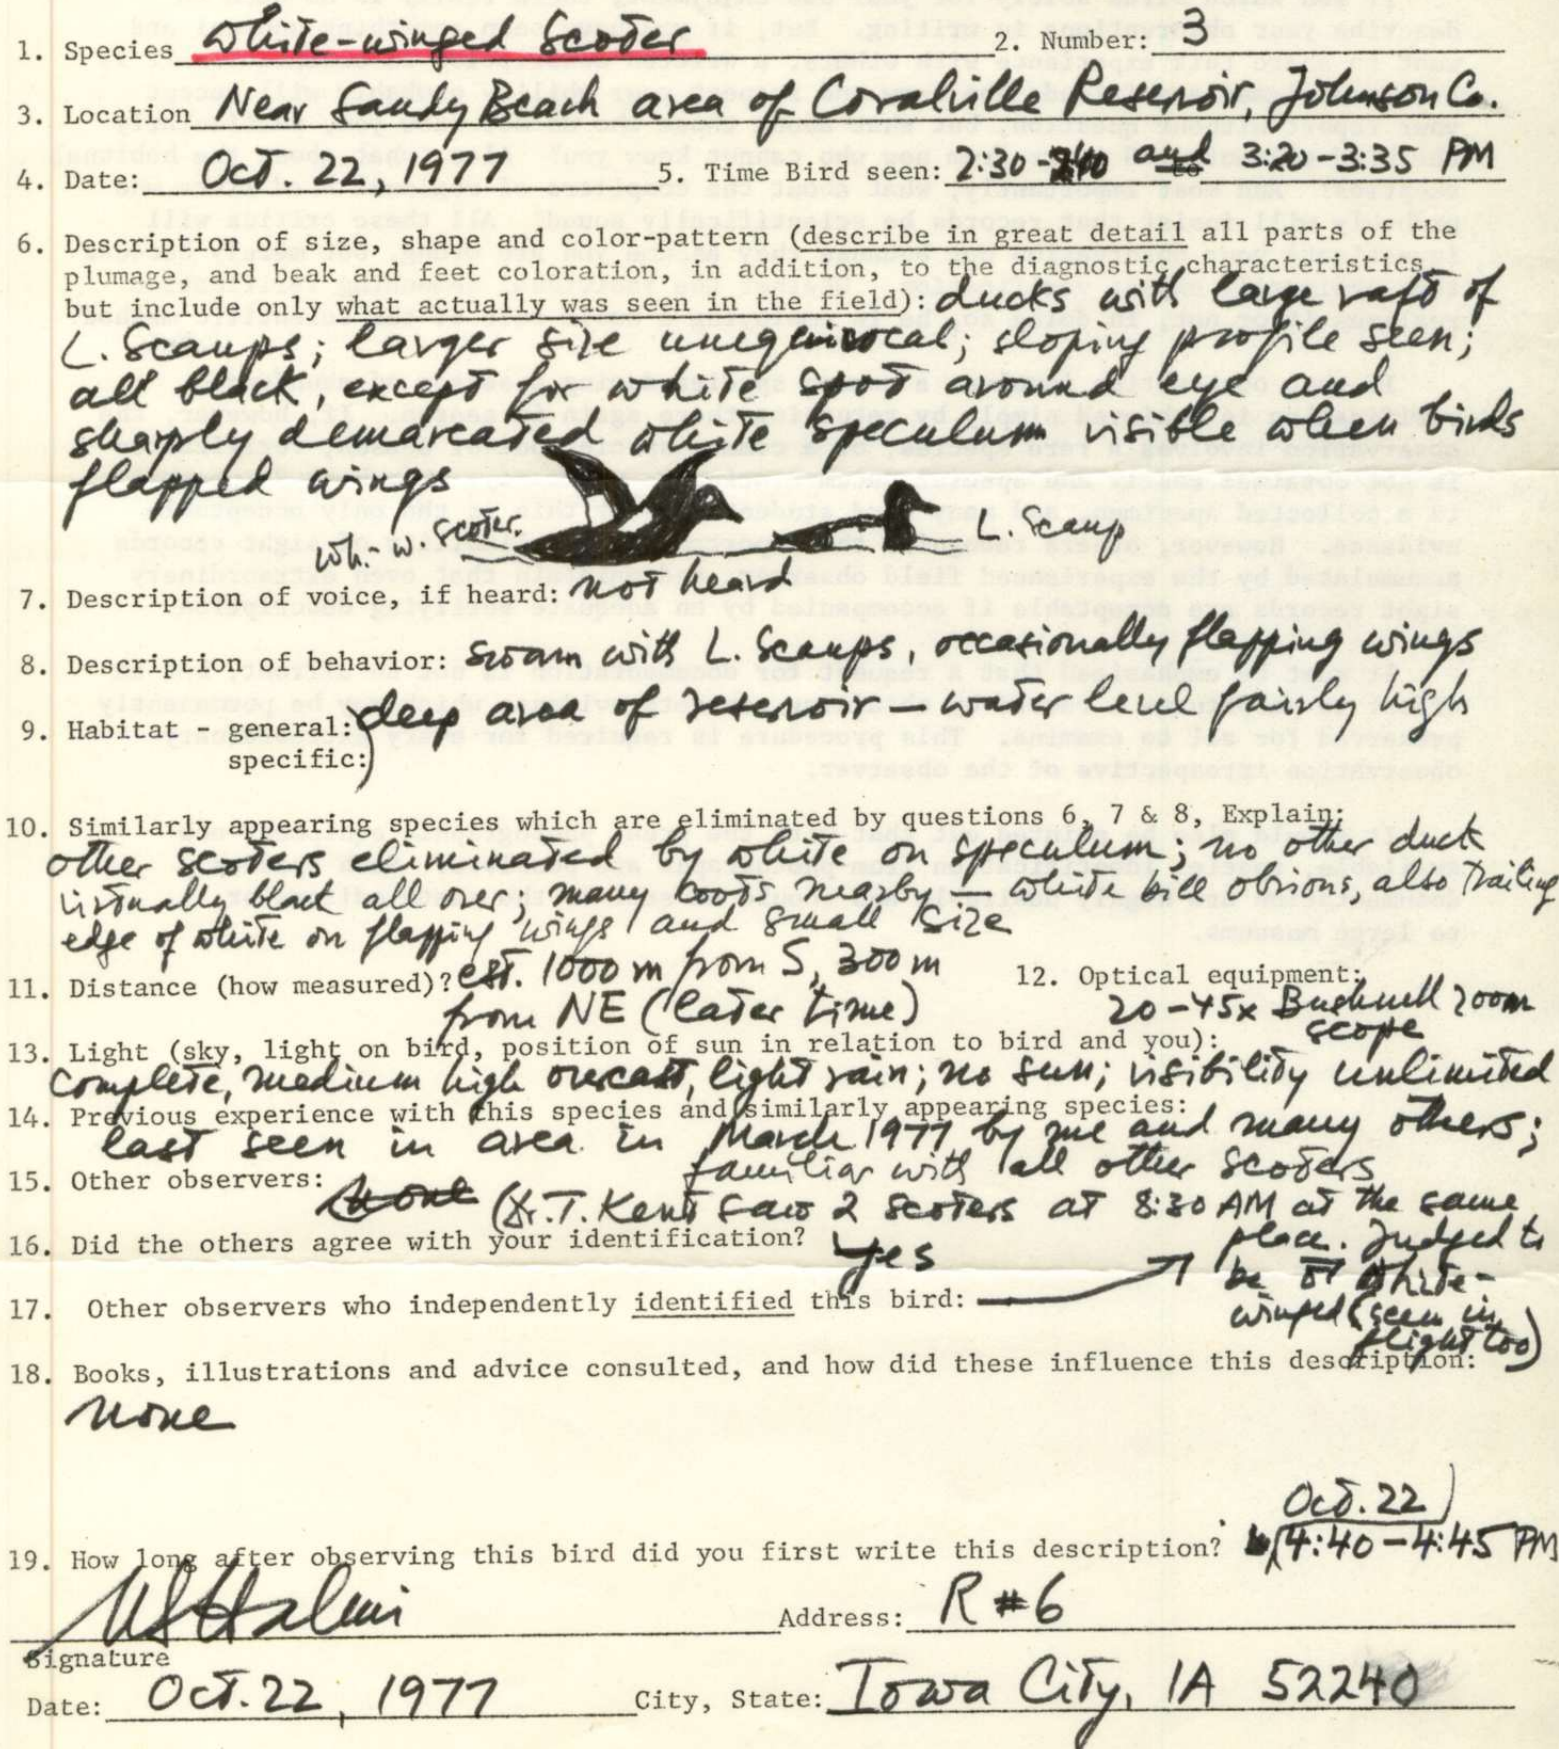 1. Species White-winged Scoter 2. Number: 3
3. Location Near Sandy Beach area of Coralville Reservoir, Johnson Co.
4. Date: Oct. 22, 1977 5. Time Bird seen: 2:30-2:40 and 3:20-3:35 PM
6. Description of size, shape and color-pattern (describe in great detail all parts of the
plumage, and beak and feet coloration, in addition, to the diagnostic characteristics
but include only what actually was seen in the field): ducks with large raft of
L. Scaups; larger size unequivocal; sloping profile seen;
all black, except for white spot around eye and
sharply demarcated white speculum visible when birds
flapped wings
wh.-w. scoter. L. Scaup
7. Description of voice, if heard: not heard
8. Description of behavior: swam with L. Scaups, occasionally flapping wings
9. Habitat - general: deep area of reservoir — water level fairly high
specific:
10. Similarly appearing species which are eliminated by questions 6, 7 & 8, Explain:
other scoters eliminated by white on speculum; no other duck
virtually black all over; many coots nearby — white bill obvious, also trailing
edge of white on flapping wings and small size
11. Distance (how measured)? est. 1000 m from S, 300 m 12. Optical equipment:
from NE (later time) 20-45x Bushnell zoom
scope
13. Light (sky, light on bird, position of sun in relation to bird and you):
complete, medium high overcast, light rain; no sun; visibility unlimited
14. Previous experience with this species and similarly appearing species:
last seen in area in March 1977 by me and many others;
familiar with all other scoters
15. Other observers: none (Dr. T. Kent saw 2 scoters at 8:30 AM at the same
16. Did the others agree with your identification? yes place. Judged to
be white-
17. Other observers who independently identified this bird: winged (seen in
flight too)
18. Books, illustrations and advice consulted, and how did these influence this description:
none
Oct. 22
19. How long after observing this bird did you first write this description? 4:40-4:45 PM
NSHalmi Address: R #6
Signature
Date: Oct. 22, 1977 City, State: Iowa City, IA 52240